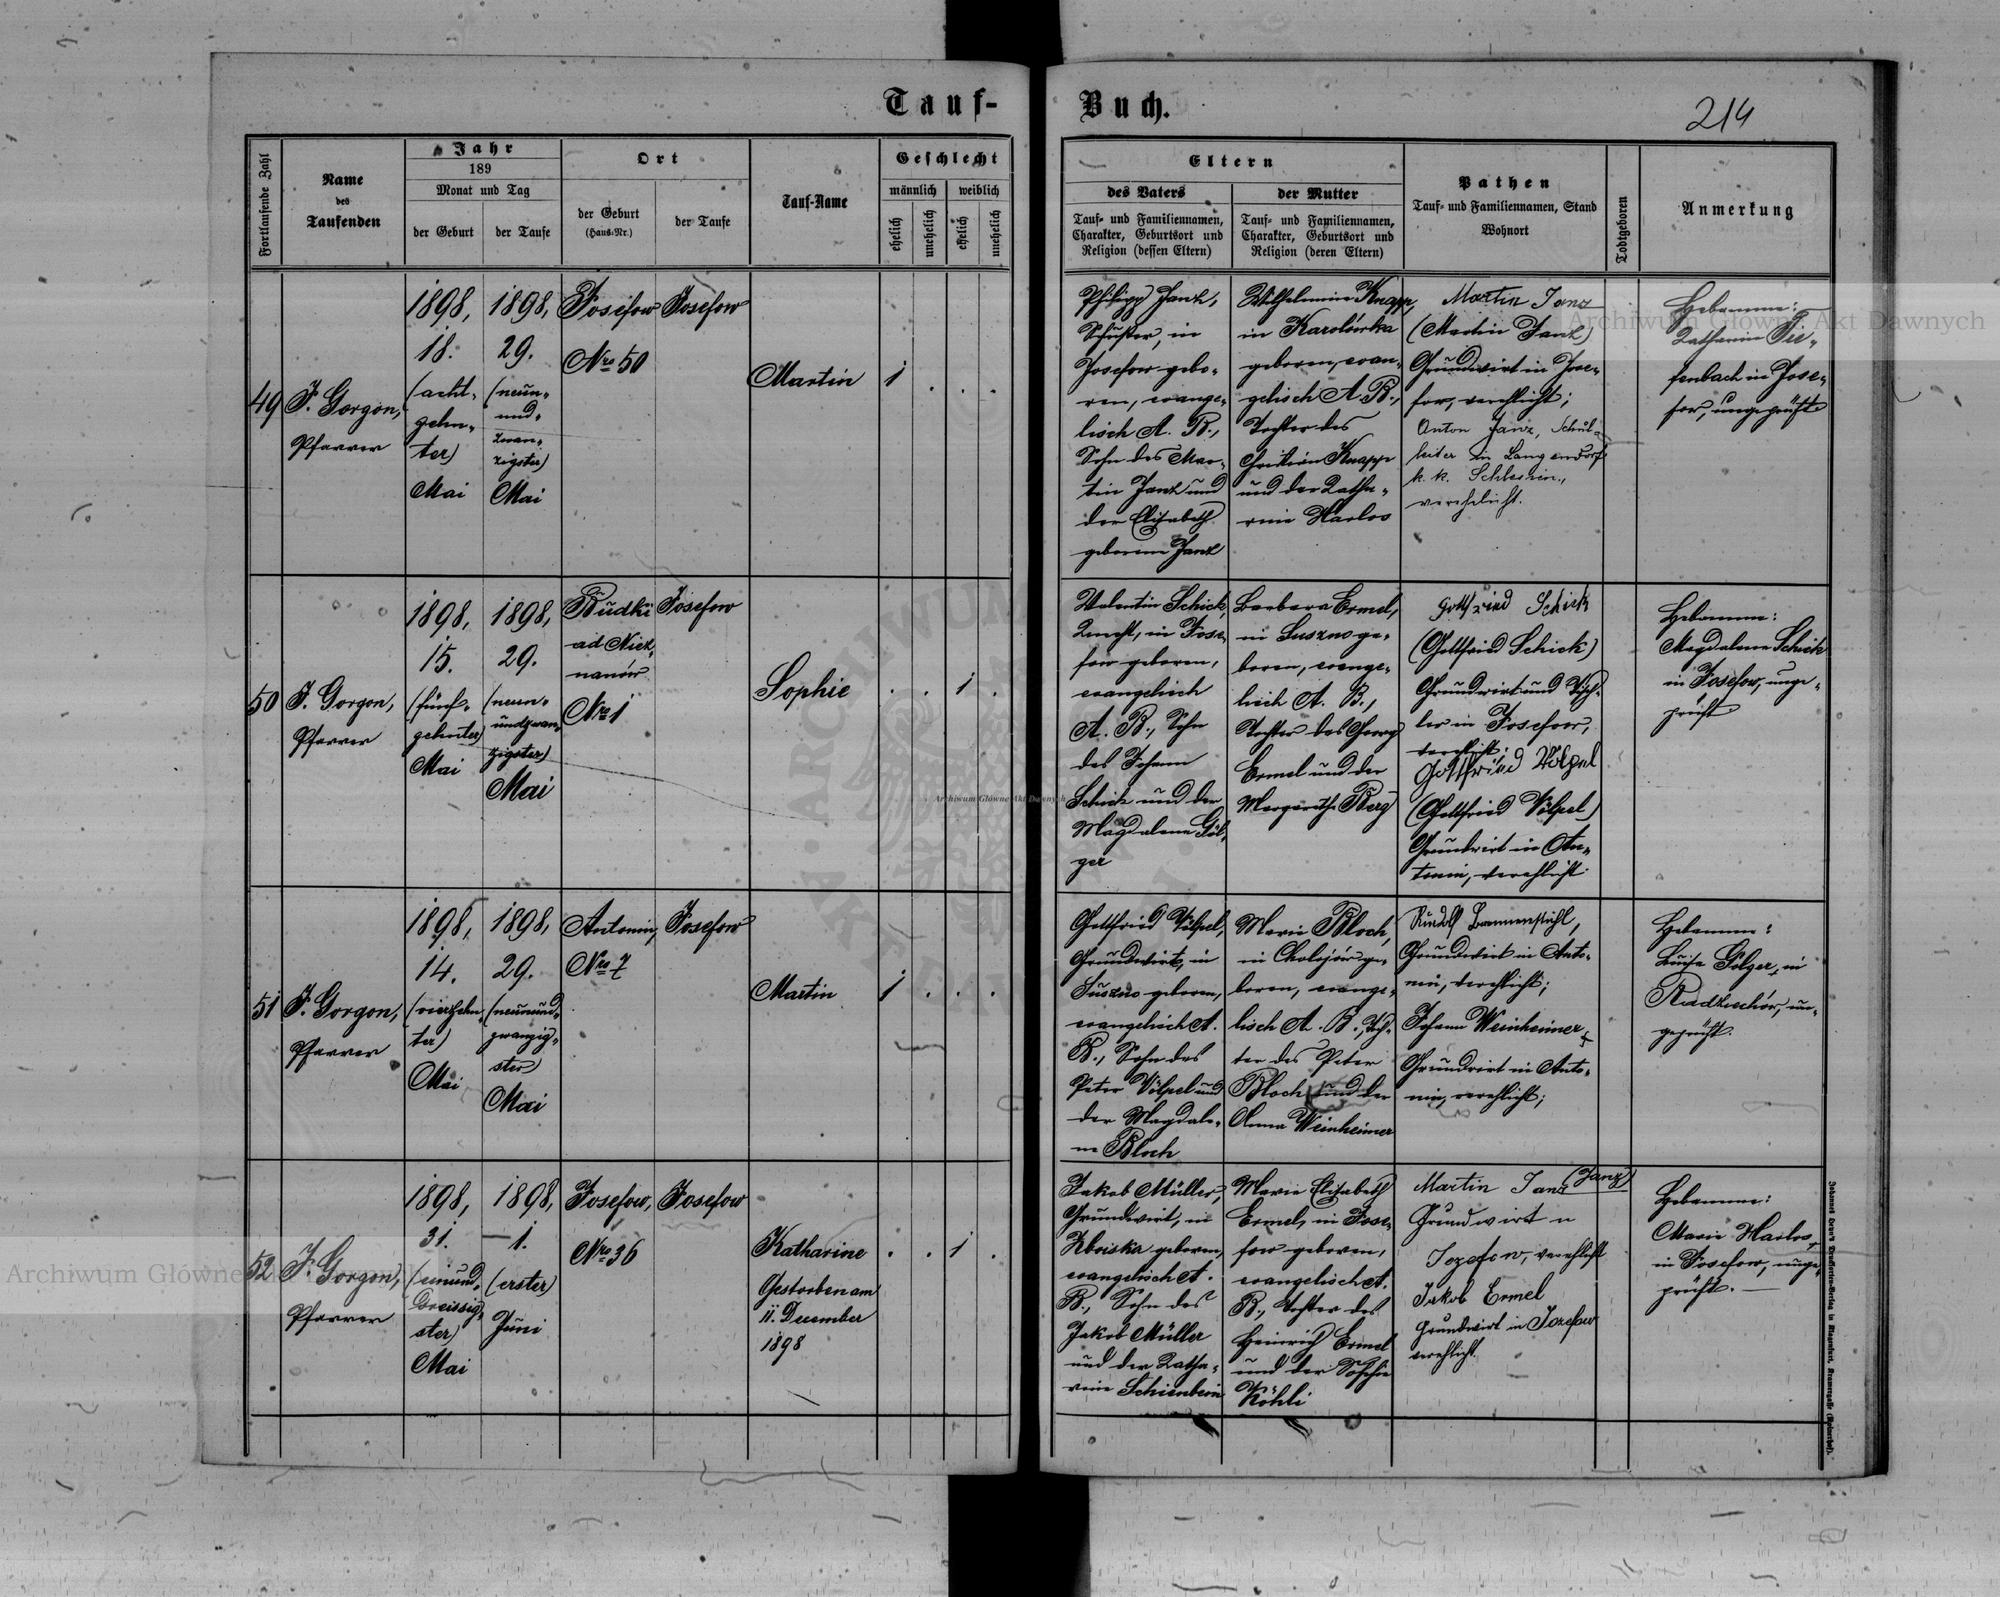 Tauf-
Buch.
214
Fortlaufende Zahl
Name
des
Taufenden
Jahr
189
Monat und Tag
der Geburt
der Taufe
Ort
der Geburt
(Haus-Nr.)
der Taufe
Tauf-Name
Geschlecht
männlich
weiblich
ehelich
unehelich
ehelich
unehelich
Eltern
des Vaters
Tauf- und Familiennamen,
Charakter, Geburtsort und
Religion (dessen Eltern)
der Mutter
Tauf- und Familiennamen,
Charakter, Geburtsort und
Religion (deren Eltern)
Pathen
Tauf- und Familiennamen, Stand
Wohnort
Todtgeboren
Anmerkung
49
J. Gorgon,
Pfarrer
1898,
18.
(acht-
zehn-
ter)
Mai
1898,
29.
(neun-
und-
zwan-
zigster)
Mai
Josefow
Nro 50
Josefow
Martin
1
Philipp Janz,
Schuster, in
Josefow gebo-
ren, evange-
lisch A. B.,
Sohn des Mar-
tin Janz und
der Elisabeth
geborene Janz
Wilhelmine Knapp,
in Karolówka
geboren, evan-
gelisch A. B.,
Tochter des
Christian Knapp
und der Katha-
rine Harlos
Martin Janz
(Martin Janz)
Grundwirt in Jose-
fow, verehlicht;
Anton Janz, Schul-
leiter in Langendorf
k. k. Schlesien,
verehelicht.
Hebamme:
Katharine Tie-
fenbach in Jose-
fow, ungeprüft
50
J. Gorgon,
Pfarrer
1898,
15.
(fünf-
zehnter)
Mai
1898,
29.
(neun-
undzwan-
zigster)
Mai
Budki
ad Niez-
nanów
Nro 1
Josefow
Sophie
1
Valentin Schick,
Knecht, in Jose-
fow geboren,
evangelisch
A. B., Sohn
des Johann
Schick und der
Magdalena Göl-
zer
Barbara Ermel,
in Suszno ge-
boren, evange-
lisch A. B.,
Tochter des Georg
Ermel und der
Margarethe Berg
Gottfried Schick
(Gottfried Schick)
Grundwirt und Tisch-
ler in Josefow,
verehlicht;
Gottfried Völpel
(Gottfried Völpel)
Grundwirt in An-
tonin, verehlicht
Hebamme:
Magdalena Schick
in Josefow, unge-
prüft
51
J. Gorgon,
Pfarrer
1898,
14.
(vierzehn-
ter)
Mai
1898,
29.
(neunund-
zwanzig-
ster)
Mai
Antonin,
Nro 7
Josefow
Martin
1
Gottfried Völpel,
Grundwirt, in
Suszno geboren,
evangelisch A.
B., Sohn des
Peter Völpel und
der Magdale-
ne Bloch
Marie Bloch,
in Cholojów ge-
boren, evange-
lisch A. B., Toch-
ter des Peter
Bloch und der
Anna Weinheimer
Rudolf Bannenstiehl,
Grundwirt in Anto-
nin, verehlicht;
Johann Weinheimer
Grundwirt in Anto-
nin, verehlicht;
Hebamme:
Luise Gölzer, in
Radziechów, un-
geprüft.
52
J. Gorgon,
Pfarrer
1898,
31.
(einund-
dreissig-
ster)
Mai
1898,
1.
(erster)
Juni
Josefow,
Nro 36
Josefow
Katharine
Gestorben am
11. December
1898
1
Jakob Müller,
Grundwirt, in
Zboiska geboren,
evangelisch A.
B., Sohn des
Jakob Müller
und der Katha-
rine Schienbein
Marie Elisabeth
Ermel, in Jose-
fow geboren,
evangelisch A.
B., Tochter des
Heinrich Ermel
und der Sophie
Köhli
Martin Janz (Janz)
Grundwirt n
Jozefow, verehlicht
Jakob Ermel
Grundwirt in Jozefow
verehlicht.
Hebamme:
Marie Harlos,
in Josefow, unge-
prüft.
Archiwum Główne Akt Dawnych
Archiwum Główne Akt Dawnych
Archiwum Główne